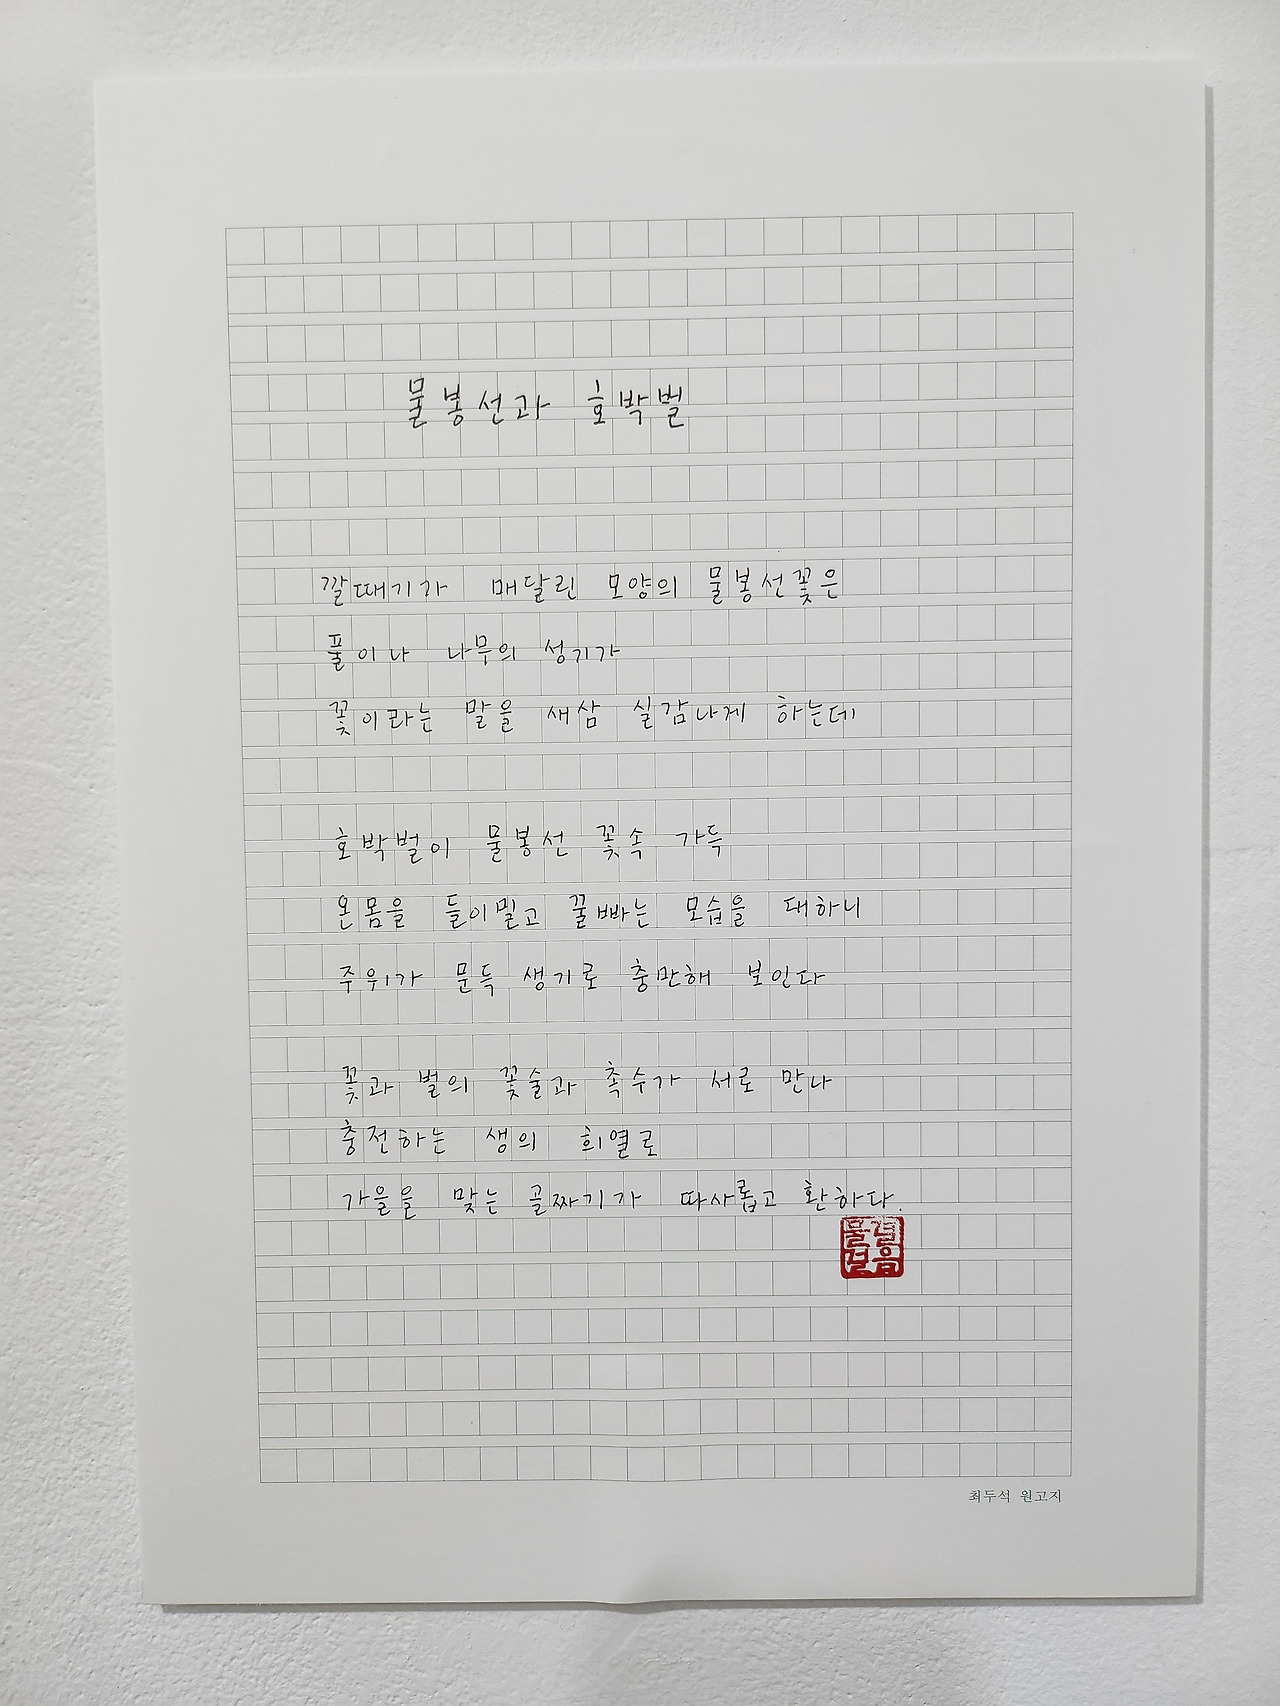 물봉선과 호박벌
깔때기가 매달린 모양의 물봉선꽃은
풀이나 나무의 성기가
꽃이라는 말을 새삼 실감나게 하는데
호박벌이 물봉선 꽃속 가득
온몸을 들이밀고 꿀빠는 모습을 대하니
주위가 문득 생기로 충만해 보인다
꽃과 벌의 꽃술과 촉수가 서로 만나
충전하는 생의 희열로
가을을 맞는 골짜기가 따사롭고 환하다.
최두석 원고지